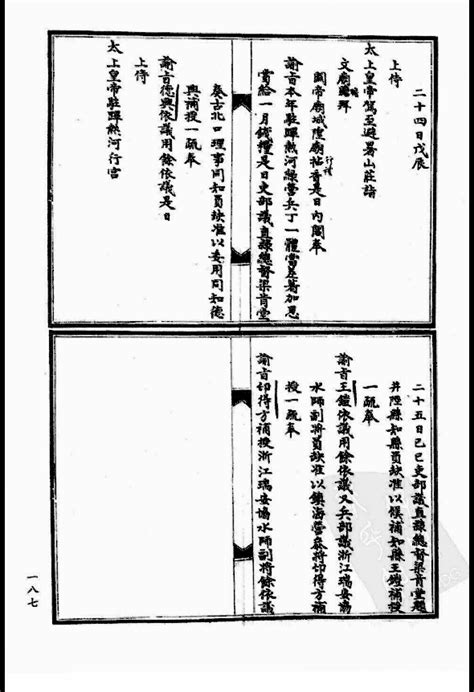 二十四日戊辰
上侍
太上皇帝駕至避暑山莊詣
文廟瞻拜
關帝廟城隍廟拈香是日內閣奉
行禮
諭旨本年駐蹕熱河綠營兵丁一體當差著加恩
賞給一月錢糧是日吏部議直隸總督梁肯堂
奏古北口理事同知員缺准以委用同知德
興補授一疏奉
諭旨德興依議用餘依議是日
上侍
太上皇帝駐蹕熱河行宮
二十五日己巳吏部議直隸總督梁肯堂題
井陘縣知縣員缺准以候補知縣王鎧補授
一疏奉
諭旨王鎧依議用餘依議又兵部議浙江瑞安協
水師副將員缺准以鎮海營參將切得方補
授一疏奉
諭旨切得方補授浙江瑞安協水師副將餘依議
一八七